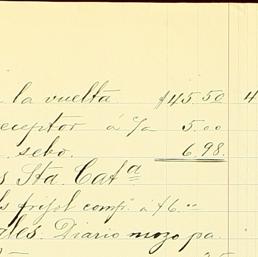 la vuelta. $45.50 4
receptor á c/a 5.00
sebo. 6.98
Sta. Catᵃ
frijol comp. a $6.00
les. Diario mozo pa.